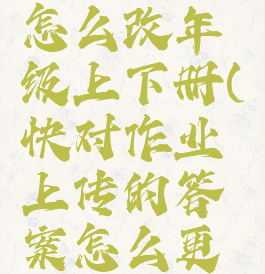 怎么改年
级上下册(
快对作业
上传的答
案怎么更